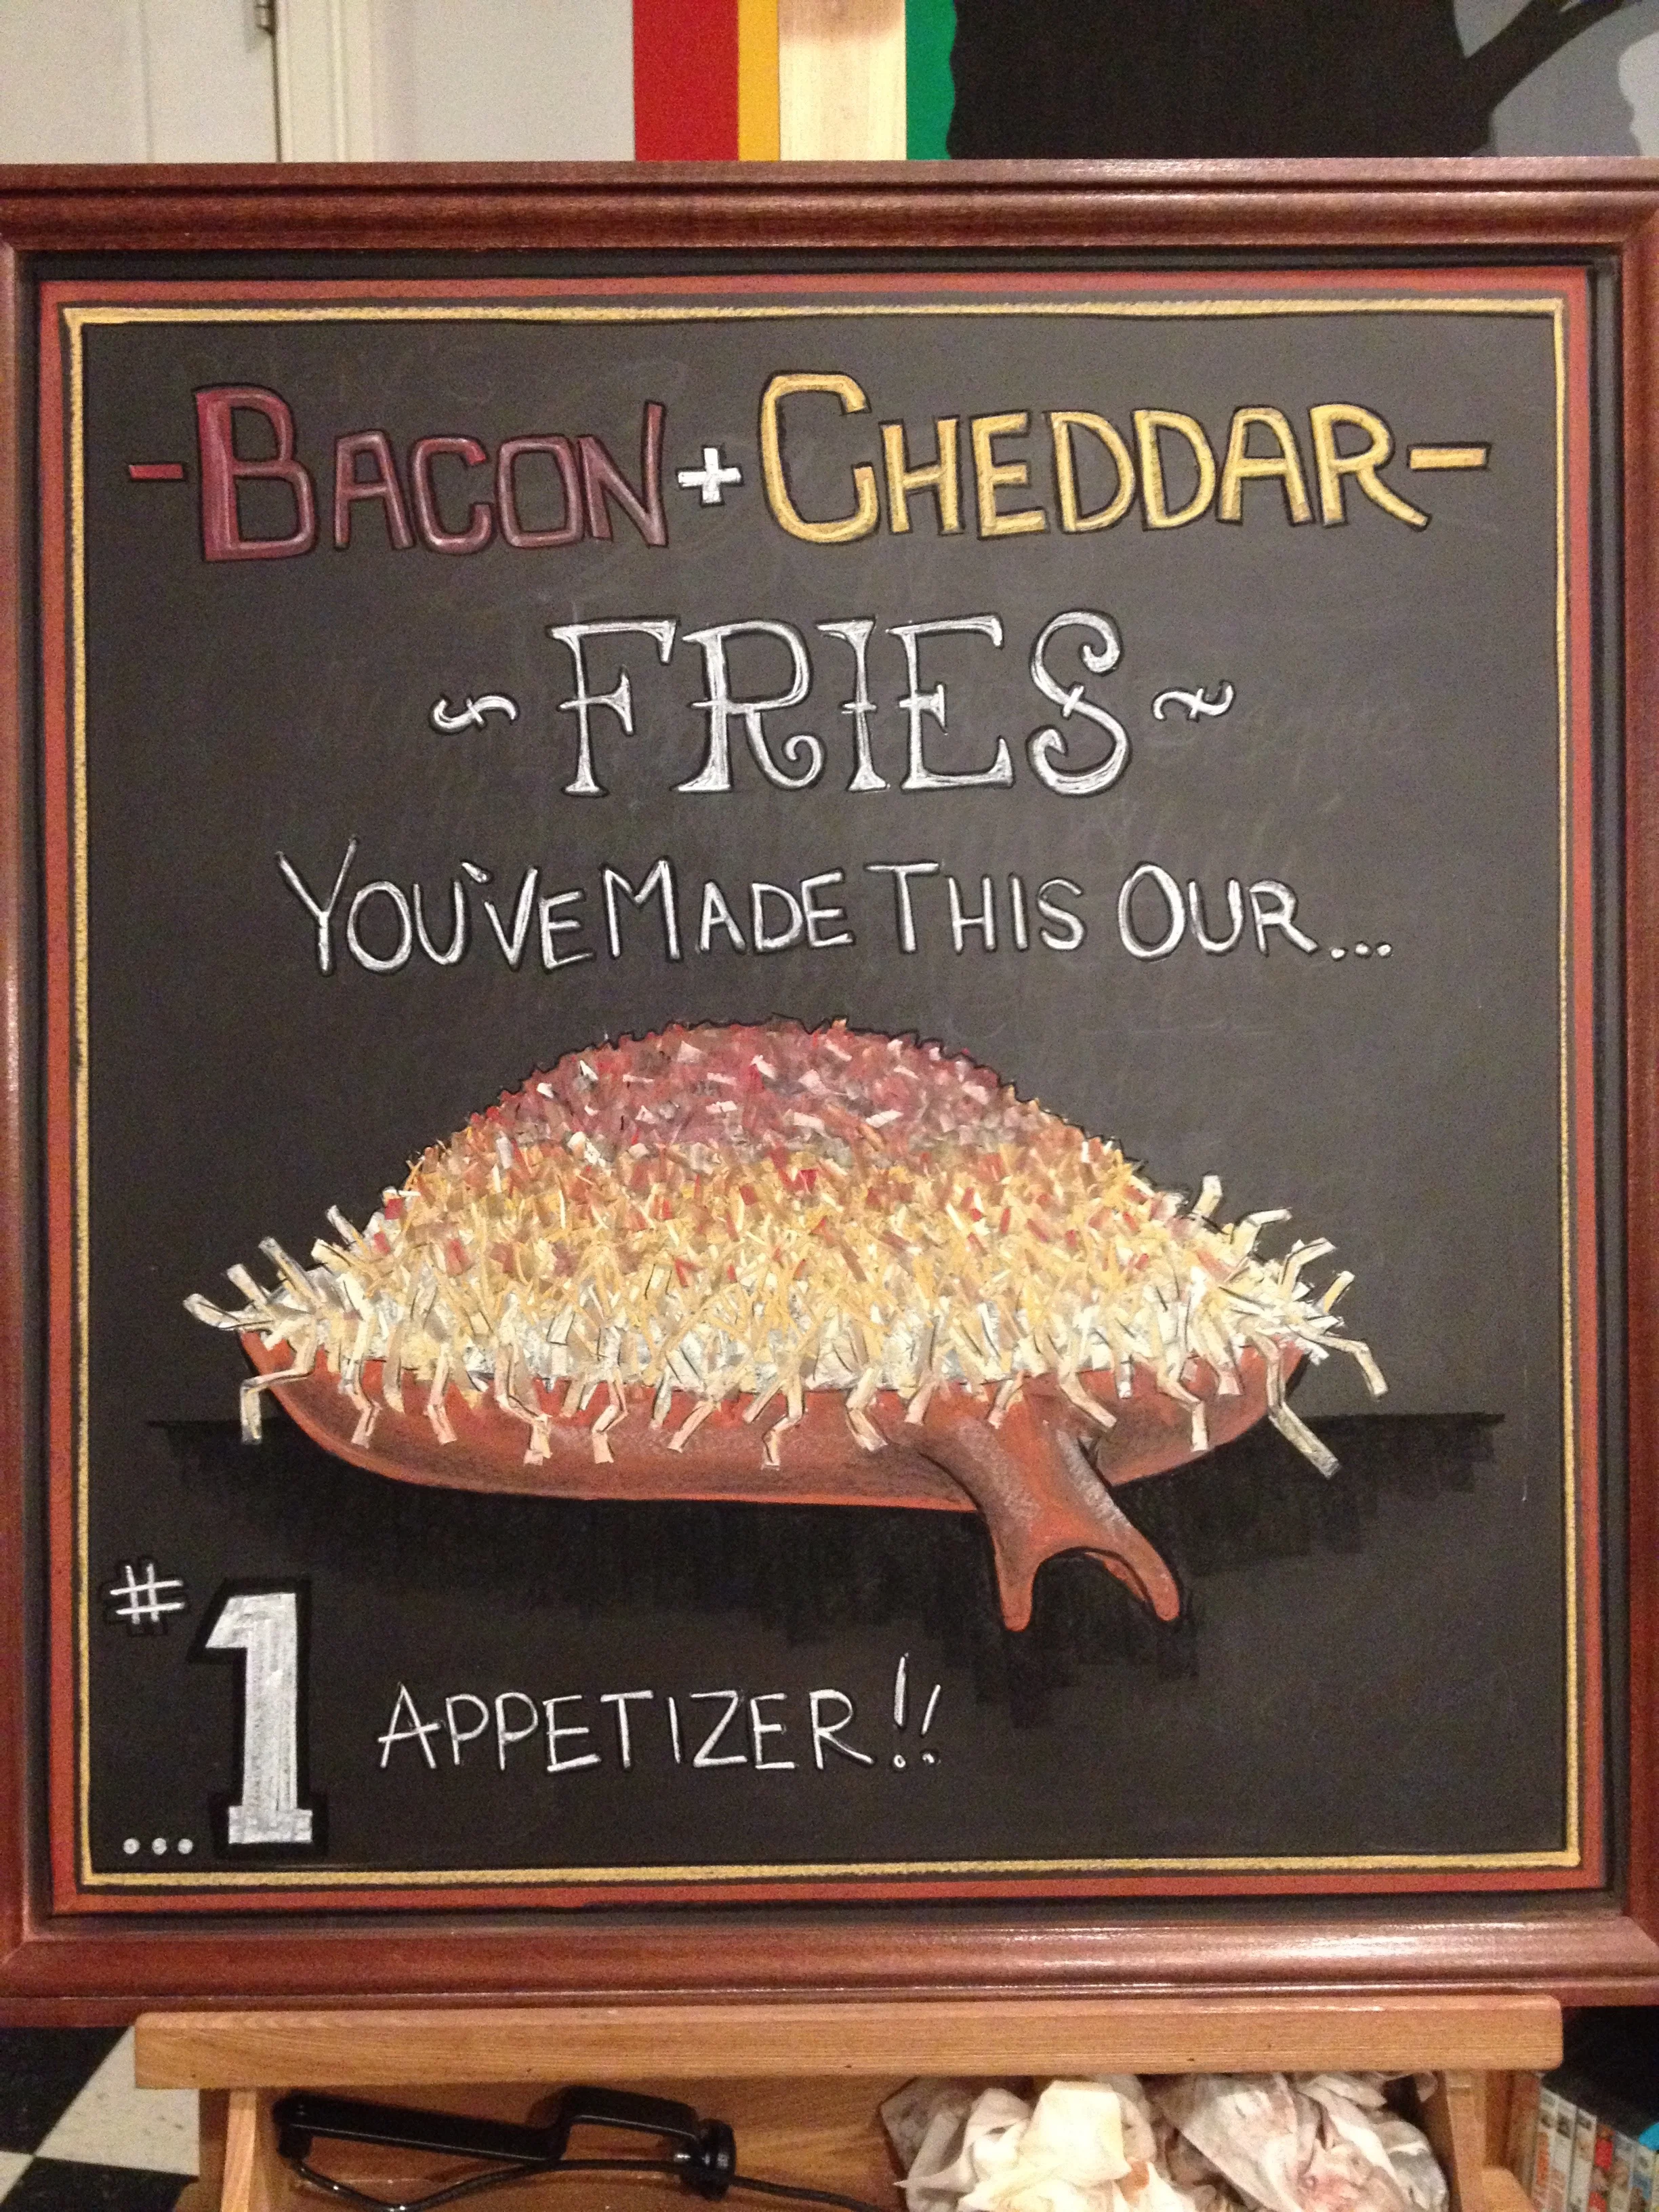 -BACON + CHEDDAR-
~ FRIES ~
YOU'VE MADE THIS OUR...
#1 APPETIZER!!
...